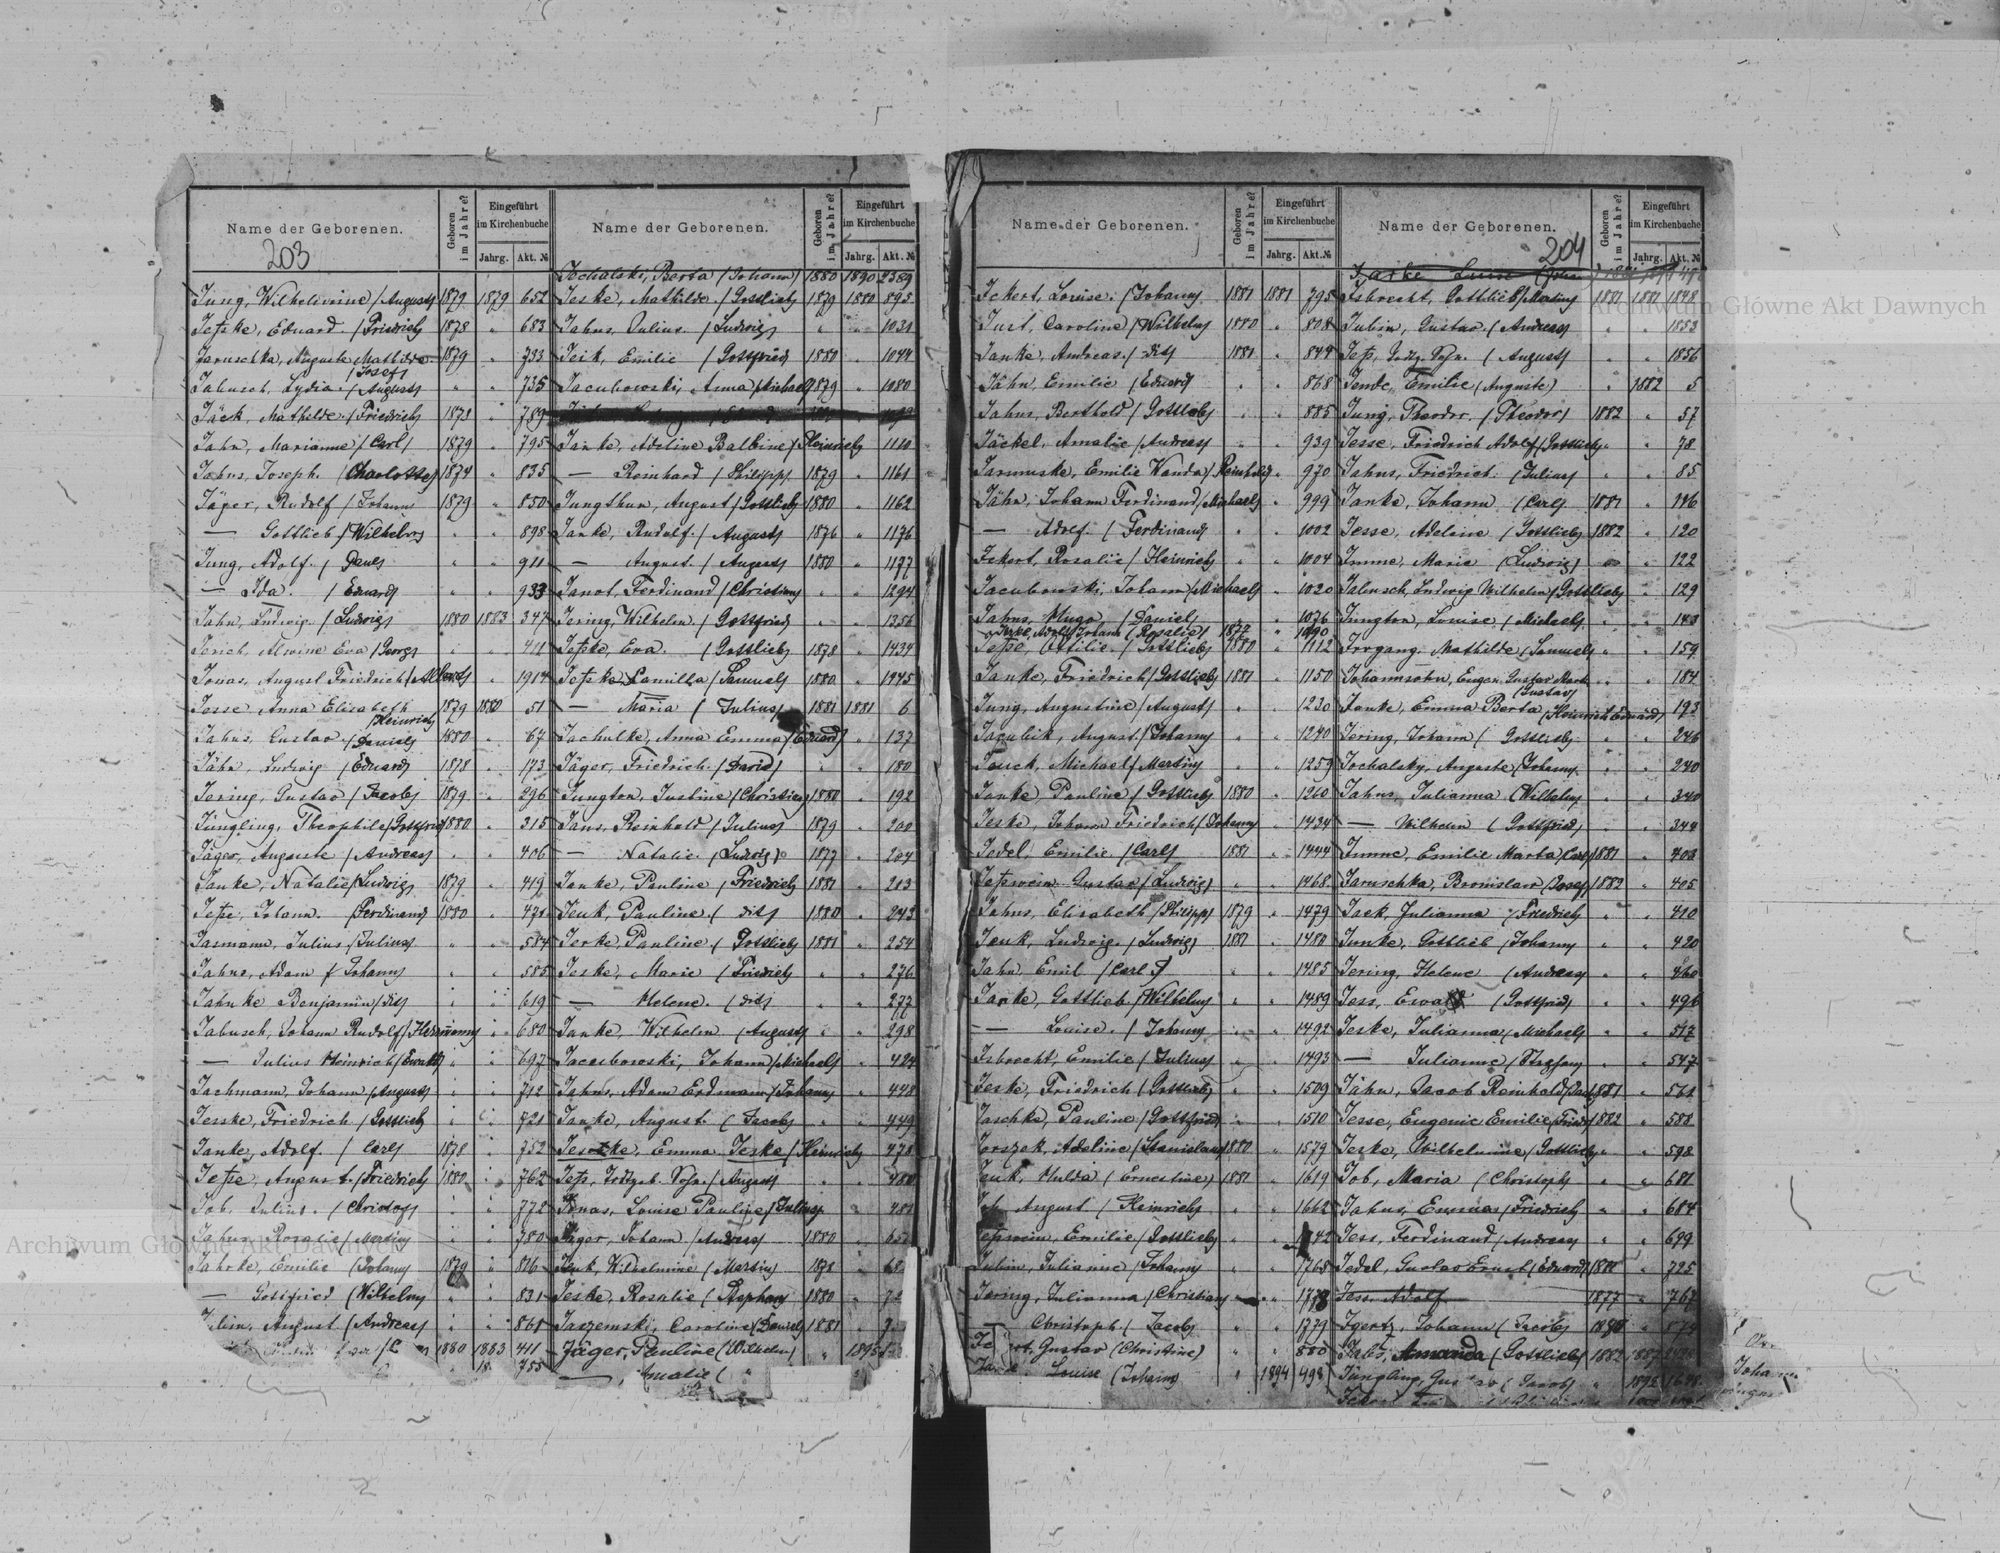 203
Name der Geborenen. Geboren im Jahre? Eingeführt im Kirchenbuche Jahrg. Akt. №
Jung, Wilhelmine /August/ 1879 1879 652
Jeske, Eduard /Friedrich/ 1878 " 683
Jaruschka, Auguste Mathilde /Josef/ 1879 " 733
Jabusch, Lydia /August/ " " 735
Jäck, Mathilde /Friedrich/ 1873 " 789
Jahn, Marianne /Carl/ 1879 " 795
Jahns, Joseph /Charlotte/ 1874 " 835
Jäger, Rudolf /Johann/ 1879 " 850
— Gottlieb /Wilhelm/ " " 898
Jung, Adolf / Paul/ " " 911
— Ida / Eduard/ " " 933
Jahn, Ludwig /Ludwig/ 1880 1883 347
Jerich, Alwine Eva /Georg/ " " 411
Jonas, August Friedrich /Albert/ " " 1914
Jesse Anna Elisabeth /Heinrich/ 1879 1880 51
Jahns, Gustav /Daniel/ 1880 " 67
Jähn, Ludwig /Eduard/ 1878 " 173
Jering, Gustav /Jacob/ 1879 " 296
Jüngling, Theophile /Gottfried/ 1880 " 315
Jäger, Auguste /Andreas/ " " 406
Janke, Natalie /Ludwig/ 1879 " 419
Jesse, Johann /Ferdinand/ 1880 " 471
Jasmann, Julius /Julius/ " " 584
Jahns, Adam / Johann/ " " 585
Jähnke Benjamin /dit/ " " 619
Jabusch, Johann Rudolf /Hermann/ " " 680
— Julius Heinrich /Ewald/ " " 697
Jachmann, Johann /August/ " " 712
Jeske, Friedrich /Gottlieb/ " " 721
Janke, Adolf / Carl/ 1878 " 752
Jesse, August /Friedrich/ 1880 " 762
Job, Julius /Christof/ " " 772
Jahns, Rosalie /Martin/ " " 780
Jahnke, Emilie /Johann/ 1879 " 816
— Gottfried /Wilhelm/ " " 831
Jubin, August /Andreas/ " " 861
1880 1883 411
755
Name der Geborenen. Geboren im Jahre? Eingeführt im Kirchenbuche Jahrg. Akt. №
Jochalski, Berta /Johann/ 1880 1890 2389
Jeske, Mathilde /Gottlieb/ 1879 1880 895
Jahns, Julius /Ludwig/ " " 1031
Jeik, Emilie /Gottfried/ 1880 " 1044
Jacubowski, Anna /Michael/ 1879 " 1080
Janke, Adeline Balbine /Heinrich/ " 1110
— Reinhard /Philipp/ 1879 " 1161
Jungthun, August /Gottlieb/ 1880 " 1162
Janke, Rudolf / August/ 1876 " 1176
— August / August/ 1880 " 1177
Janot, Ferdinand /Christian/ " " 1294
Jering, Wilhelm /Gottfried/ " " 1356
Jeske, Eva /Gottlieb/ 1878 " 1434
Jeske Kamilla /Samuel/ 1880 " 1945
— Maria / Julius/ 1881 1881 6
Jachulke, Anna Emma /Eduard/ " 137
Jäger, Friedrich /David/ " " 180
Jungton, Justine /Christian/ 1880 " 192
Jans, Reinhold /Julius/ 1879 " 200
— Natalie /Ludwig/ 1877 " 204
Janke, Pauline /Friedrich/ 1881 " 213
Jeuk, Pauline / dit/ 1880 " 243
Jerke, Pauline / Gottlieb/ 1881 " 254
Jeske, Marie /Friedrich/ " " 276
— Helene /dit/ " " 277
Janke, Wilhelm /August/ " " 298
Jacubowski, Johann /Michael/ " 424
Jahns, Adam Erdmann /Johann/ " 448
Janke, August /Jacob/ " " 449
Jeschke, Emma Jeske /Heinrich/ 478
Jonas, Louise Pauline /Julius/ " 481
Jäger, Johann /Andreas/ 1880 "
Jeuk, Wilhelmine /Martin/ 1878 "
Jeske, Rosalie /Stephan/ 1880 "
Jaszemski, Caroline /Daniel/ 1881 "
Jäger, Pauline (Wilhelm) " 1895
— Amalie ( "
Name der Geborenen. Geboren im Jahre? Eingeführt im Kirchenbuche Jahrg. Akt. №
Jckert, Louise /Johann/ 1881 1881 795
Just, Caroline /Wilhelm/ 1880 " 808
Janke, Andreas / dit/ 1881 " 849
Jähn, Emilie /Eduard/ " " 868
Jahns, Berthold /Gottlieb/ " " 885
Jäckel, Amalie /Andreas/ " " 939
Jarmuske, Emilie Wanda /Reinhold/ " 970
Jähn, Johann Ferdinand /Michael/ " 999
— Adolf / Ferdinand/ " " 1002
Jckert, Rosalie /Heinrich/ " " 1004
Jacubowski, Johann /Michael/ " 1020
Jahns, Hugo /Daniel/ " " 1036
Jeske, Adolf Johann (Rosalie) 1877 " 1090
Jesse, Ottilie /Gottlieb/ 1880 " 1112
Janke, Friedrich /Gottlieb/ 1881 " 1150
Jung, Augustine /August/ " " 1230
Jacubik, August /Johann/ " " 1240
Jauck, Michael /Martin/ " " 1259
Janke Pauline /Gottlieb/ 1880 " 1260
Jeske, Johann Friedrich /Johann/ " 1434
Jedel, Emilie /Carl/ 1881 " 1444
Jesswein Gustav /Ludwig/ " " 1468
Jahns, Elisabeth /Philipp/ 1879 " 1479
Jeuk, Ludwig /Ludwig/ 1881 " 1480
Jahn Emil /Carl/ " " 1485
Janke, Gottlieb /Wilhelm/ " " 1489
— Louise / Johann/ " " 1492
Jsbrecht, Emilie /Julius/ " " 1493
Jeske, Friedrich /Gottlieb/ " " 1509
Jaschke, Pauline /Gottfried/ " " 1510
Jorszek, Adeline /Stanislaus/ 1880 " 1579
Jeuk, Hulda /Ernestine/ 1881 " 1619
Job August /Heinrich/ " " 1662
Jesswein, Emilie /Gottlieb/ " " 1742
Jubin, Julianne /Johann/ " " 1768
Jering, Julianna /Christian/ " " 1778
— Christoph /Jacob/ " " 1779
Gustav (Christine) " " 880
Louise (Johann) " 1894 498
204
Name der Geborenen. Geboren im Jahre? Eingeführt im Kirchenbuche Jahrg. Akt. №
Jsbrecht, Gottlieb /Martin/ 1881 1881 1848
Jubin, Gustav / Andreas/ " " 1853
/ August/ " " 1856
Jende, Emilie (Auguste) " 1882 5
Jung, Theodor /Theodor/ 1882 " 57
Jesse, Friedrich Adolf /Gottlieb/ " 78
Jahns, Friedrich /Julius/ " " 85
Janke, Johann /Carl/ 1881 " 116
Jesse, Adeline /Gottlieb/ 1882 " 120
Jmme, Marie /Ludwig/ " " 122
Jabusch, Ludwig Wilhelm /Gottlieb/ " 129
Jungton, Louise /Michael/ " " 143
Jrrgang, Mathilde /Samuel/ " " 159
Johannsohn, Eugen Gustav /Gustav/ " " 184
Janke, Emma Berta /Heinrich Eduard/ 193
Jering, Johann / Gottlieb/ " " 246
Jochalsky, Auguste /Johann/ " " 240
Jahns, Julianna /Wilhelm/ " " 340
— Wilhelm /Gottfried/ " " 344
Jmme, Emilie Marta /Carl/ 1881 " 403
Jaruschka, Bronislaw /Josef/ 1882 " 405
Jaek, Julianna /Friedrich/ " " 410
Junke, Gottlieb /Johann/ " " 420
Jering, Helene /Andreas/ " " 460
Jess, Ewald /Gottfried/ " " 496
Jeske, Julianna /Michael/ " " 517
— Julianne /Stephan/ " " 547
Jähn, Jacob Reinhold 1881 " 571
Jesse, Eugenie Emilie 1882 " 588
Jeske, Wilhelmine /Gottlieb/ " 598
Job, Maria /Christoph/ " " 681
Jahns, Emma /Friedrich/ " " 684
Jess, Ferdinand /Andreas/ " " 699
Jedel, Gustav Ernst /Eduard/ 1881 " 725
Jess, Adolf 1877 " 767
Jgertz, Johann /Jacob/ 1880 "
Jabs, Amanda (Gottlieb) 1882 1887
Jüngling, Gustav (Jacob) " 1892
Johann
Archiwum Główne Akt Dawnych
Archiwum Główne Akt Dawnych